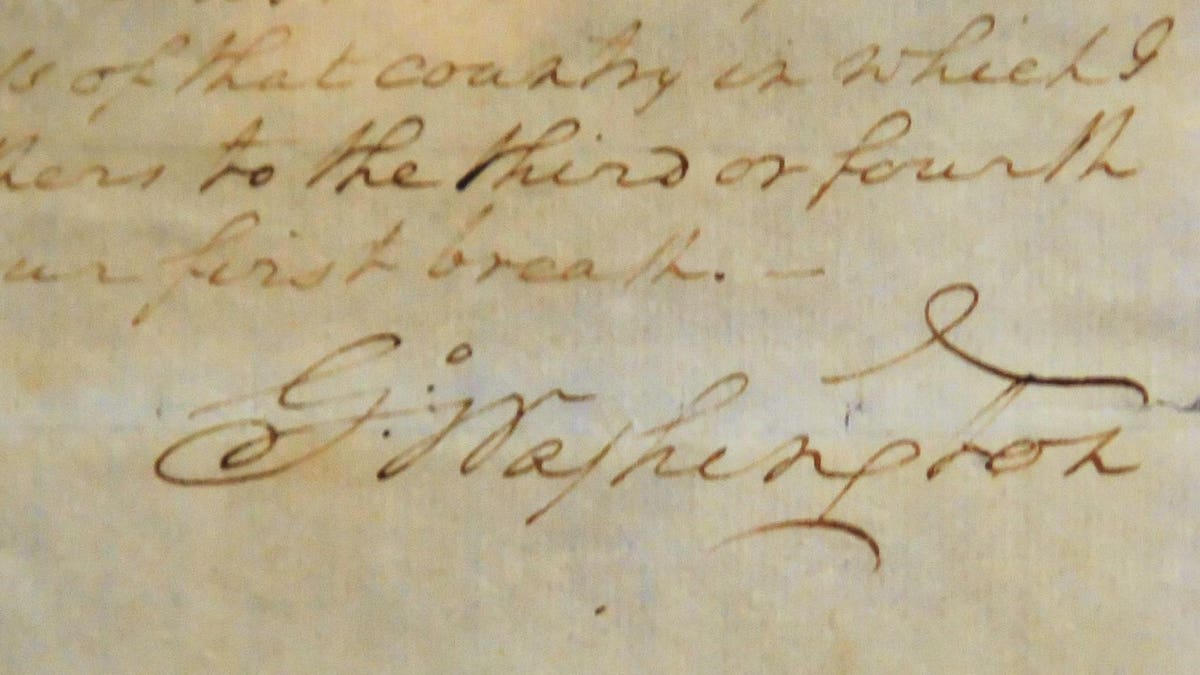 of that country in which I
to the third or fourth
first breath. —
G:Washington